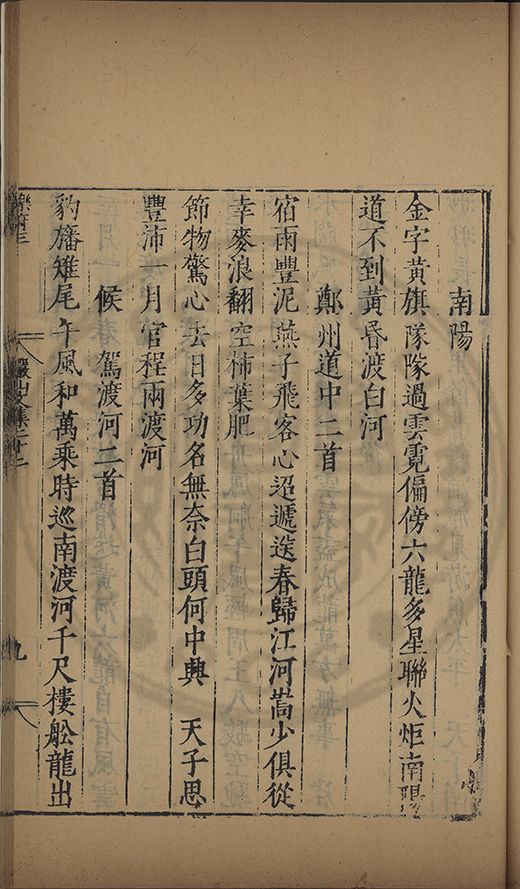 南陽
金字黃旗隊隊過雲霓偏傍六龍多星聯火炬南陽
道不到黃昏渡白河
鄭州道中二首
宿雨豐泥燕子飛客心迢遞送春歸江河茼少俱從
幸麥浪翻空柿葉肥
節物驚心去日多功名無奈白頭何中興 天子思
豐沛一月官程兩渡河
候 駕渡河二首
豹旛雉尾午風和萬乘時巡南渡河千尺樓舩龍出
九